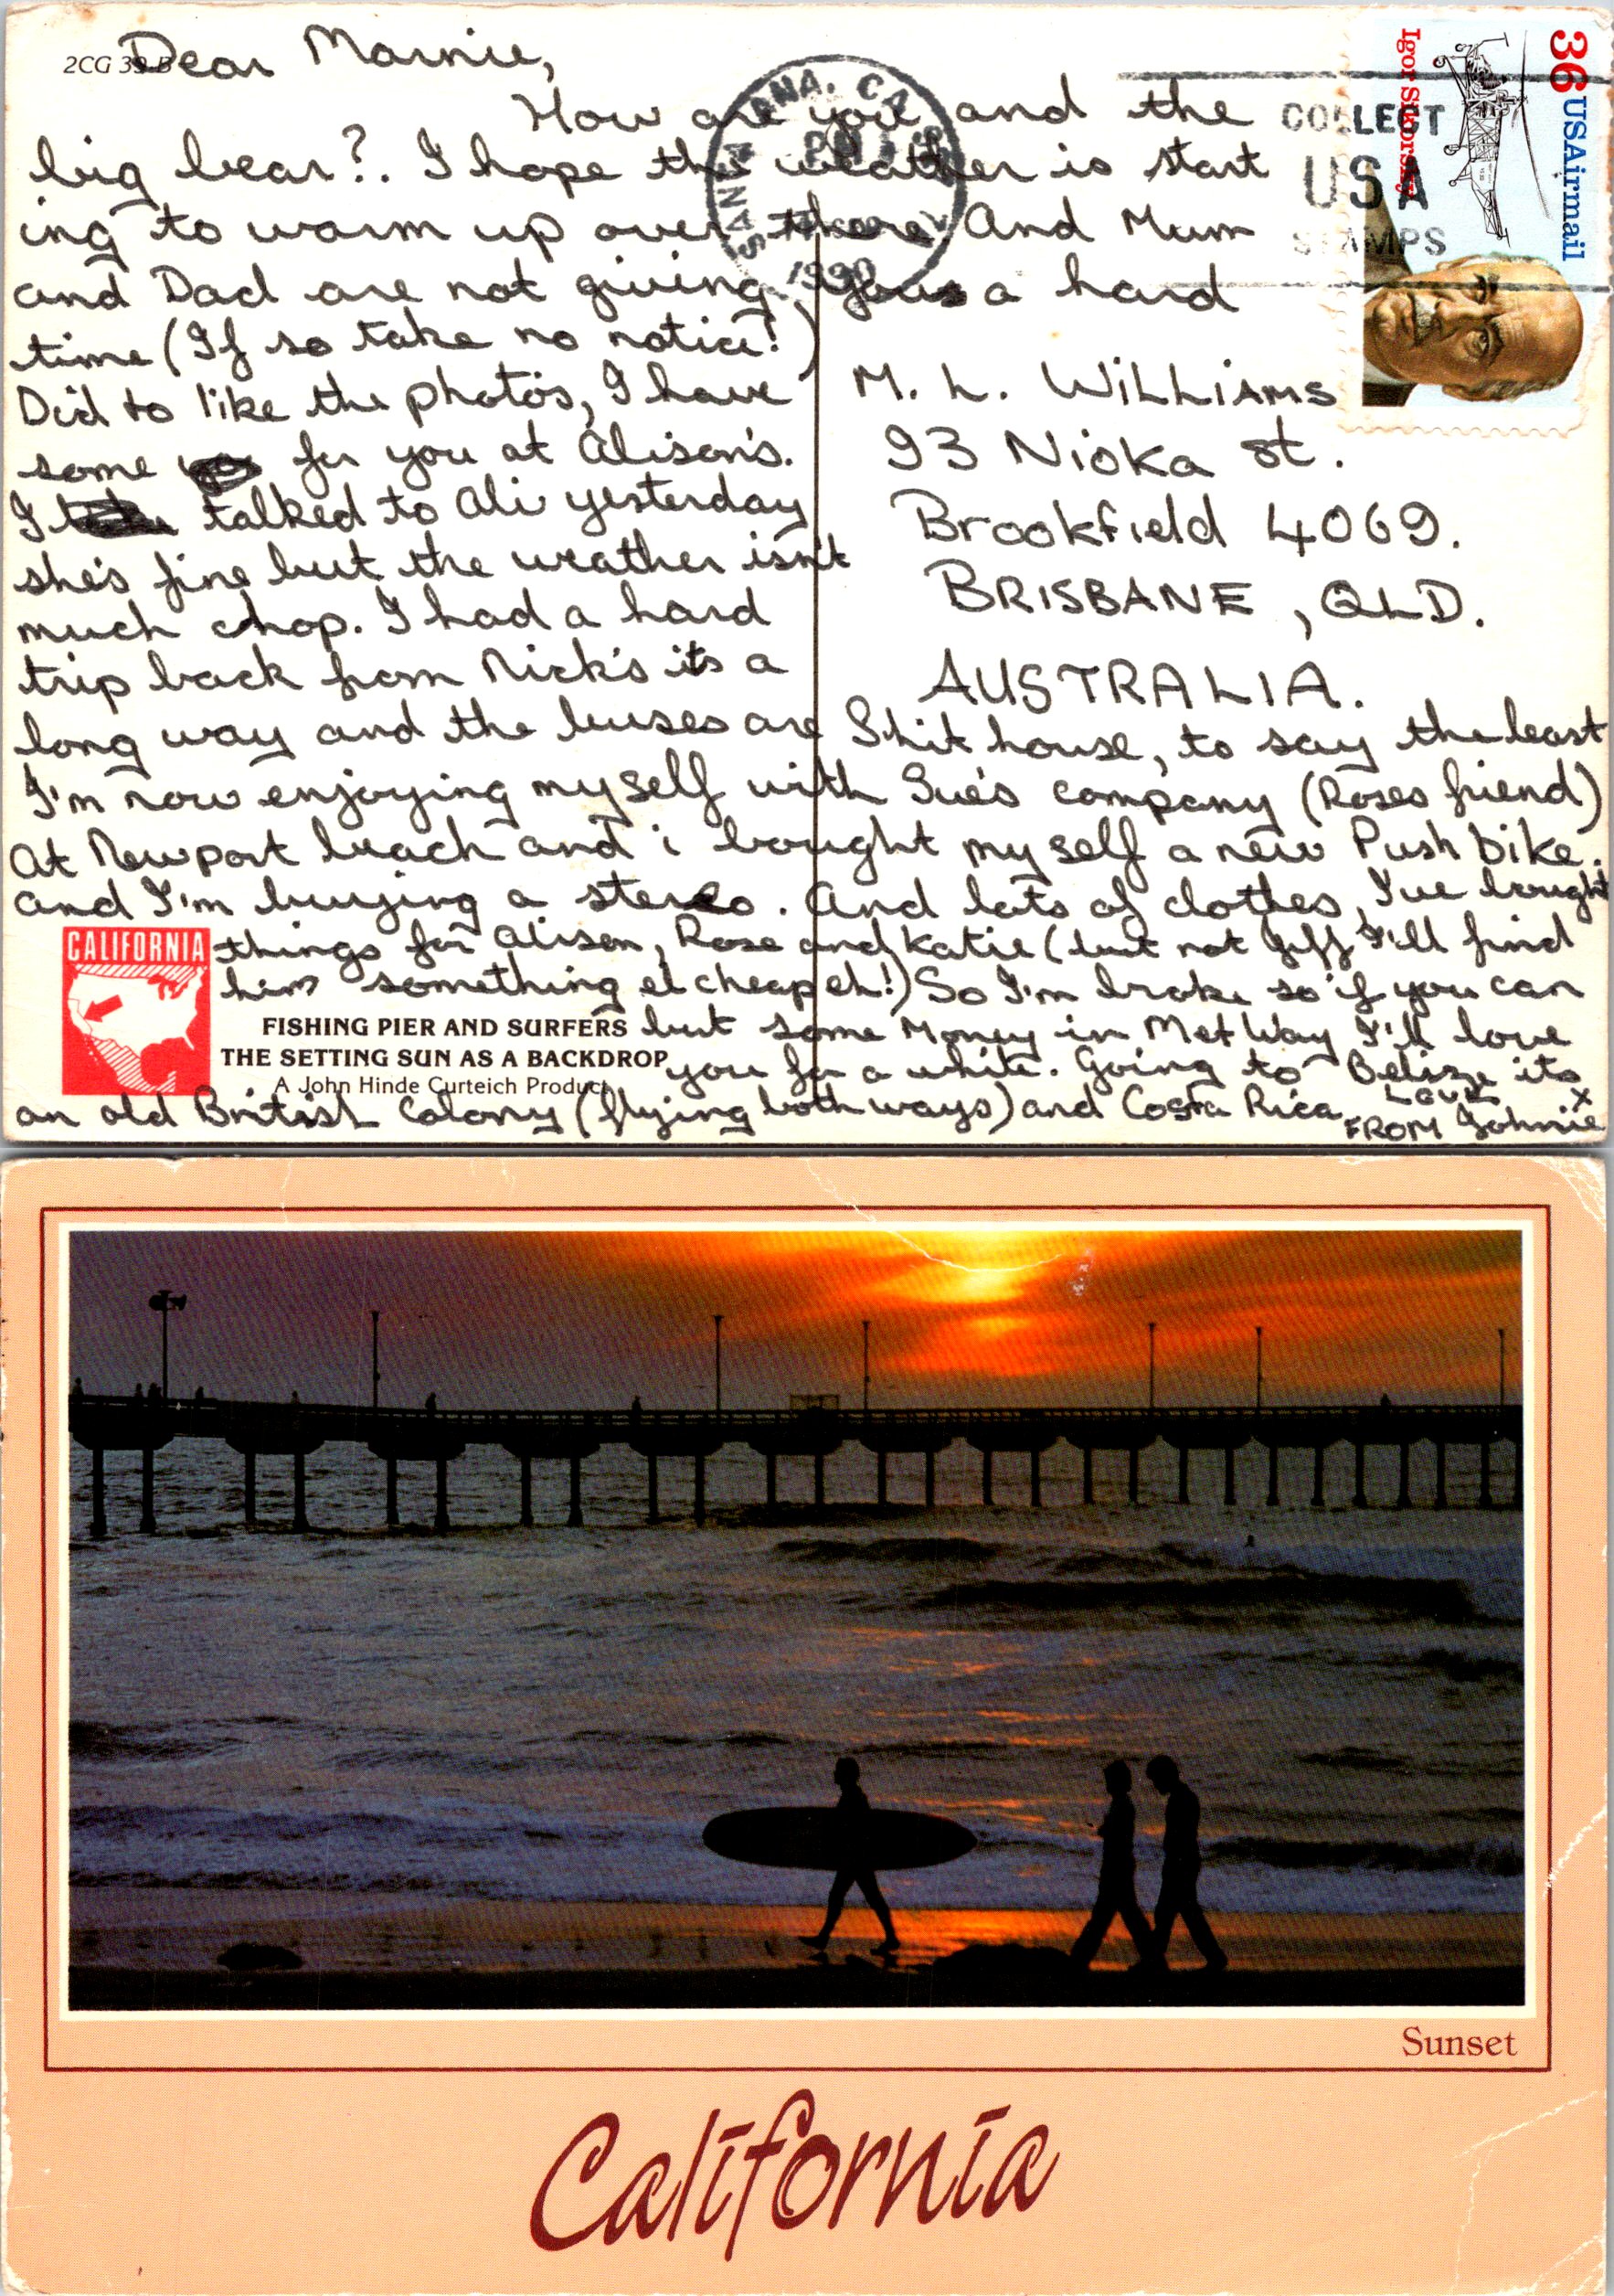 2CG 39-B
Dear Marnie,
How are you and the
big bear?. I hope the weather is start
ing to warm up over there. And Mum
and Dad are not giving you a hard
time (If so take no notice!)
Did to like the photos, I have
some for you at Alison's.
I talked to Ali yesterday
she's fine but the weather isn't
much chop. I had a hard
trip back from Nick's it's a
long way and the buses are Shit house, to say the least
I'm now enjoying myself with Sue's company (Roses friend)
At Newport beach and i bought my self a new Push bike.
and I'm buying a stereo. And lots of clothes, I've bought
things for Alison, Rose and Katie (but not Jeff I'll find
him something el cheap eh!) So I'm broke so if you can
but some Money in Met Way I'll love
you for a white. Going to Belize its
an old British Colony (flying both ways) and Costa Rica
LOVE X
FROM Johnie
M. L. WiLLiAMS
93 Nioka st.
Brookfield 4069.
BRISBANE, QLD.
AUSTRALIA.
SANTA ANA, CA
PM
1990
COLLECT
USA
STAMPS
36 USAirmail
Igor Sikorsky
CALIFORNIA
FISHING PIER AND SURFERS
THE SETTING SUN AS A BACKDROP
A John Hinde Curteich Product
Sunset
California